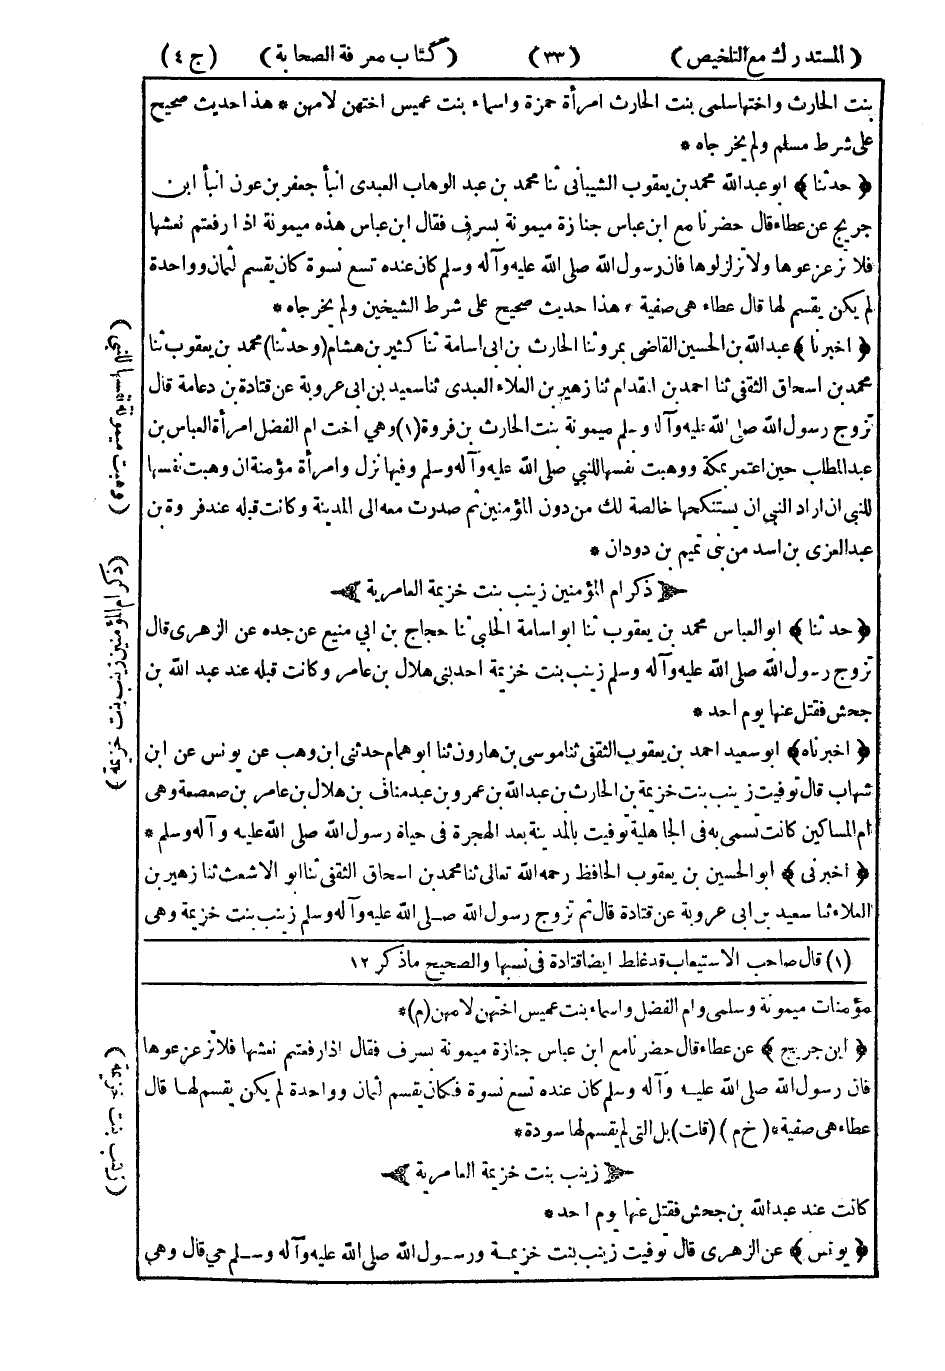 ( المستدرك مع التلخيص ) (٣٣) ( كتاب معرفة الصحابة ) ( ج ٤ )
بنت الحارث واختها سلمى بنت الحارث امرأة حمزة واسماء بنت عميس اختهن لامهن * هذا حديث صحيح
على شرط مسلم ولم يخرجاه *
﴿ حدثنا ﴾ ابو عبد الله محمد بن يعقوب الشيبانى ثنا محمد بن عبد الوهاب العبدى انبأ جعفر بن عون انبأ ابن
جريج عن عطاء قال حضرنا مع ابن عباس جنازة ميمونة بسرف فقال ابن عباس هذه ميمونة اذا رفعتم نعشها
فلا تزعزعوها ولا تزلزلوها فان رسول الله صلى الله عليه وآله وسلم كان عنده تسع نسوة كان يقسم لثمان وواحدة
لم يكن يقسم لها قال عطاء هى صفية * هذا حديث صحيح على شرط الشيخين ولم يخرجاه *
﴿ اخبرنا ﴾ عبد الله بن الحسين القاضى بمرو ثنا الحارث بن ابى اسامة ثنا كثير بن هشام (وحدثنا) محمد بن يعقوب ثنا
محمد بن اسحاق الثقفى ثنا احمد بن المقدام ثنا زهير بن العلاء العبدى ثنا سعيد بن ابى عروبة عن قتادة بن دعامة قال
تزوج رسول الله صلى الله عليه وآله وسلم ميمونة بنت الحارث بن فروة (١) وهي اخت ام الفضل امرأة العباس بن
عبد المطلب حين اعتمر بمكة ووهبت نفسها للنبي صلى الله عليه وآله وسلم وفيها نزل وامرأة مؤمنة ان وهبت نفسها
للنبى ان اراد النبى ان يستنكحها خالصة لك من دون المؤمنين ثم صدرت معه الى المدينة وكانت قبله عند فروة بن
عبد العزى بن اسد من بنى تميم بن دودان *
ذكر ام المؤمنين زينب بنت خزيمة العامرية
﴿ حدثنا ﴾ ابو العباس محمد بن يعقوب ثنا ابو اسامة الحلبي ثنا حجاج بن ابي منيع عن جده عن الزهرى قال
تزوج رسول الله صلى الله عليه وآله وسلم زينب بنت خزيمة احد بنى هلال بن عامر وكانت قبله عند عبد الله بن
جحش فقتل عنها يوم احد *
﴿ اخبرناه ﴾ ابو سعيد احمد بن يعقوب الثقفى ثنا موسى بن هارون ثنا ابو همام حدثنى ابن وهب عن يونس عن ابن
شهاب قال توفيت زينب بنت خزيمة بن الحارث بن عبد الله بن عمرو بن عبد مناف بن هلال بن عامر بن صعصعة وهى
ام المساكين كانت تسمى به فى الجاهلية توفيت بالمدينة بعد الهجرة فى حياة رسول الله صلى الله عليه وآله وسلم *
﴿ اخبرنى ﴾ ابو الحسين بن يعقوب الحافظ رحمه الله تعالى ثنا محمد بن اسحاق الثقفى ثنا ابو الاشعث ثنا زهير بن
العلاء ثنا سعيد بن ابى عروبة عن قتادة قال ثم تزوج رسول الله صلى الله عليه وآله وسلم زينب بنت خزيمة وهى
(١) قال صاحب الاستيعاب قد غلط ايضا قتادة فى نسبها والصحيح ماذكر ١٢
مؤمنات ميمونة وسلمى وام الفضل واسماء بنت عميس اختهن لامهن (م) *
﴿ ابن جريج ﴾ عن عطاء قال حضرنا مع ابن عباس جنازة ميمونة بسرف فقال اذا رفعتم نعشها فلا تزعزعوها
فان رسول الله صلى الله عليه وآله وسلم كان عنده تسع نسوة فكان يقسم لثمان وواحدة لم يكن يقسم لها قال
عطاء هى صفية * ( خ م ) (قلت) بل التى لم يقسم لها سودة *
زينب بنت خزيمة العامرية
كانت عند عبد الله بن جحش فقتل عنها يوم احد *
﴿ يونس ﴾ عن الزهرى قال توفيت زينب بنت خزيمة ورسول الله صلى الله عليه وآله وسلم حي قال وهى
( وهبت ميمونة نفسها للنبي )
( ذكر ام المؤمنين زينب بنت خزيمة )
( زينب بنت خزيمة )